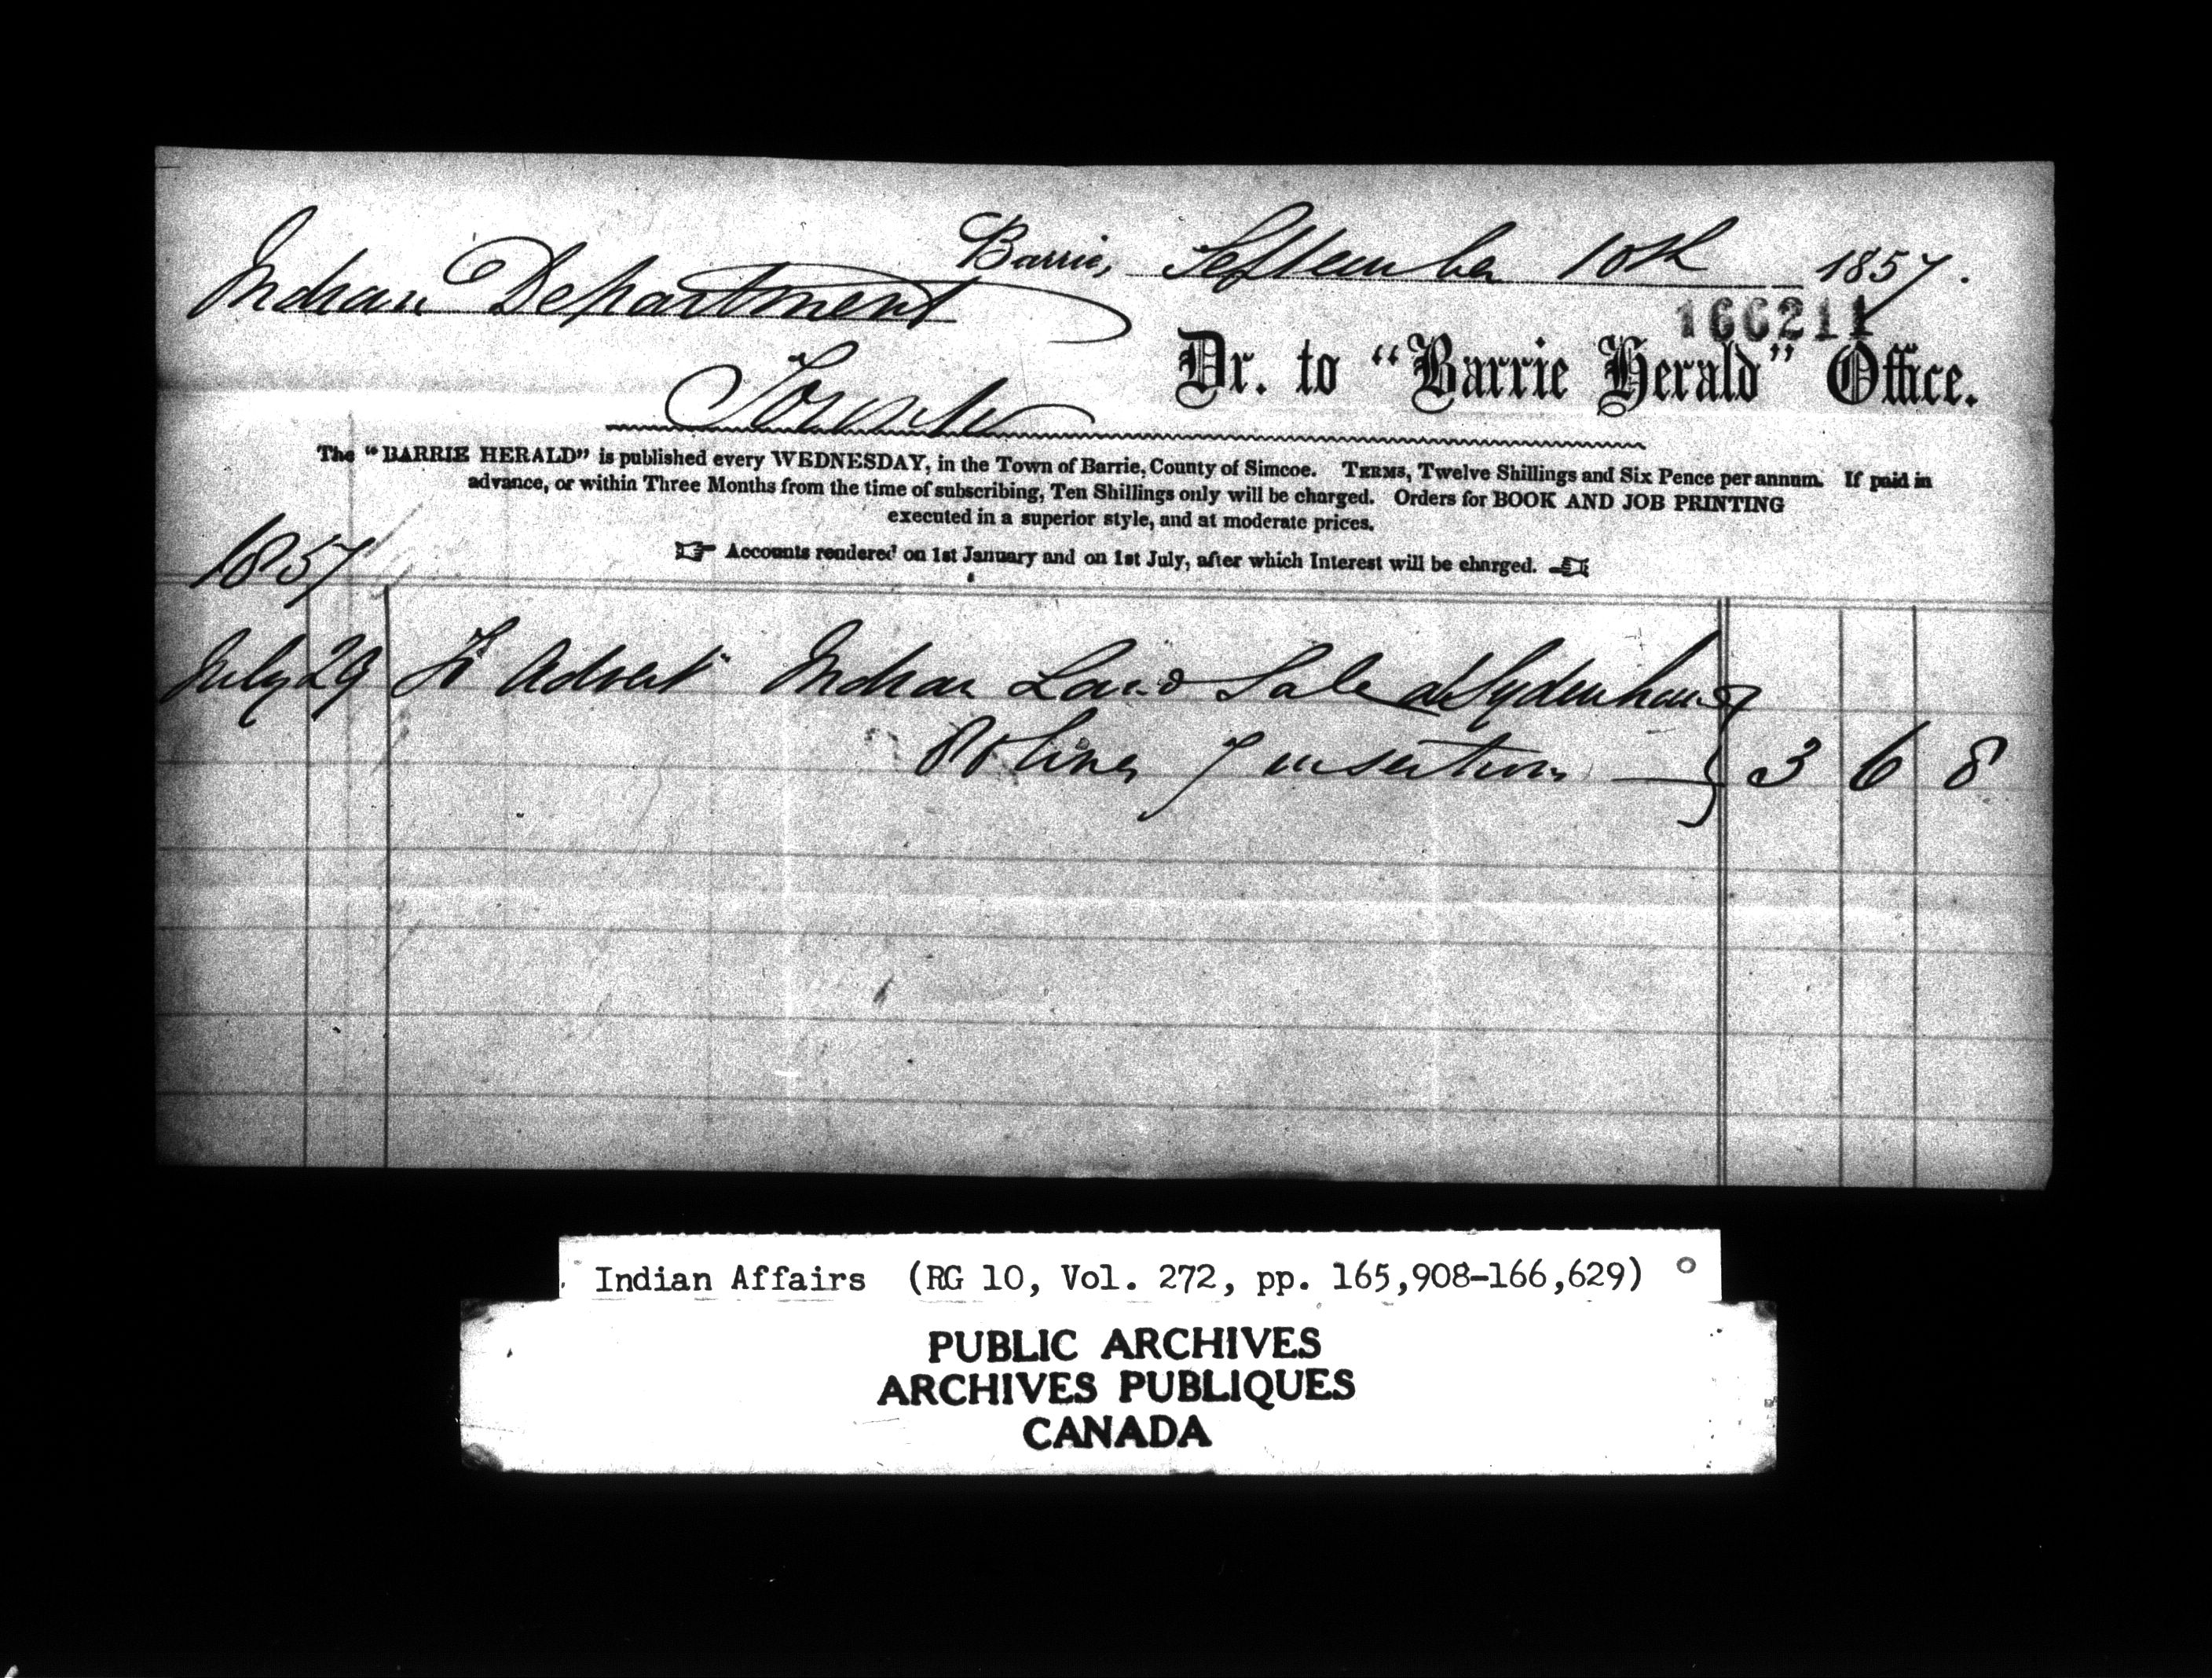 Barrie, September 10th 1857.
Indian Department
166211
Toronto
Dr. to "Barrie Herald" Office.
The "BARRIE HERALD" is published every WEDNESDAY, in the Town of Barrie, County of Simcoe. TERMS, Twelve Shillings and Six Pence per annum. If paid in
advance, or within Three Months from the time of subscribing, Ten Shillings only will be charged. Orders for BOOK AND JOB PRINTING
executed in a superior style, and at moderate prices.
Accounts rendered on 1st January and on 1st July, after which Interest will be charged.
1857
July 29 To Advert Indian Land Sale at Sydenham
80 lines 7 insertions — 3 6 8
Indian Affairs (RG 10, Vol. 272, pp. 165,908-166,629)
PUBLIC ARCHIVES
ARCHIVES PUBLIQUES
CANADA